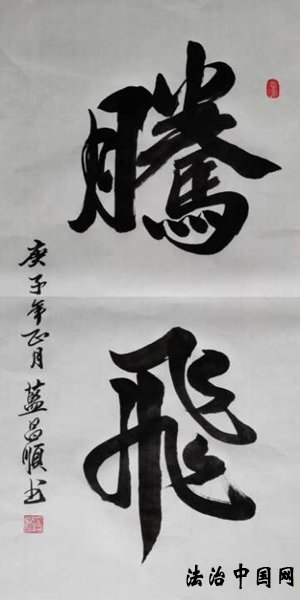 騰飛
庚子年正月藍昌順书
法治中国网